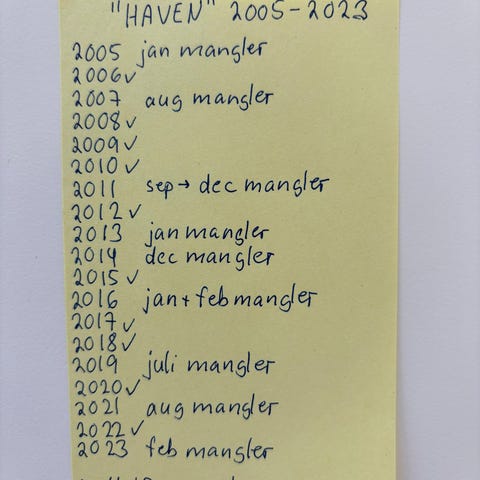 "HAVEN" 2005-2023
2005 jan mangler
2006✓
2007 aug mangler
2008✓
2009✓
2010✓
2011 sep→dec mangler
2012✓
2013 jan mangler
2014 dec mangler
2015✓
2016 jan+feb mangler
2017✓
2018✓
2019 juli mangler
2020✓
2021 aug mangler
2022✓
2023 feb mangler